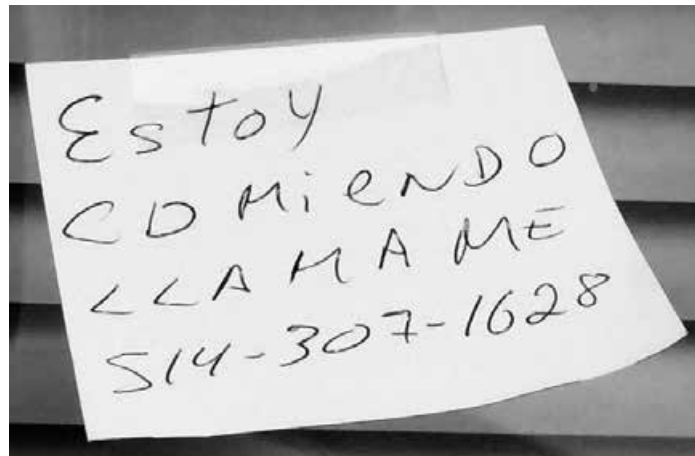 Estoy
COMieNDO
LLAMAME
514-307-1628